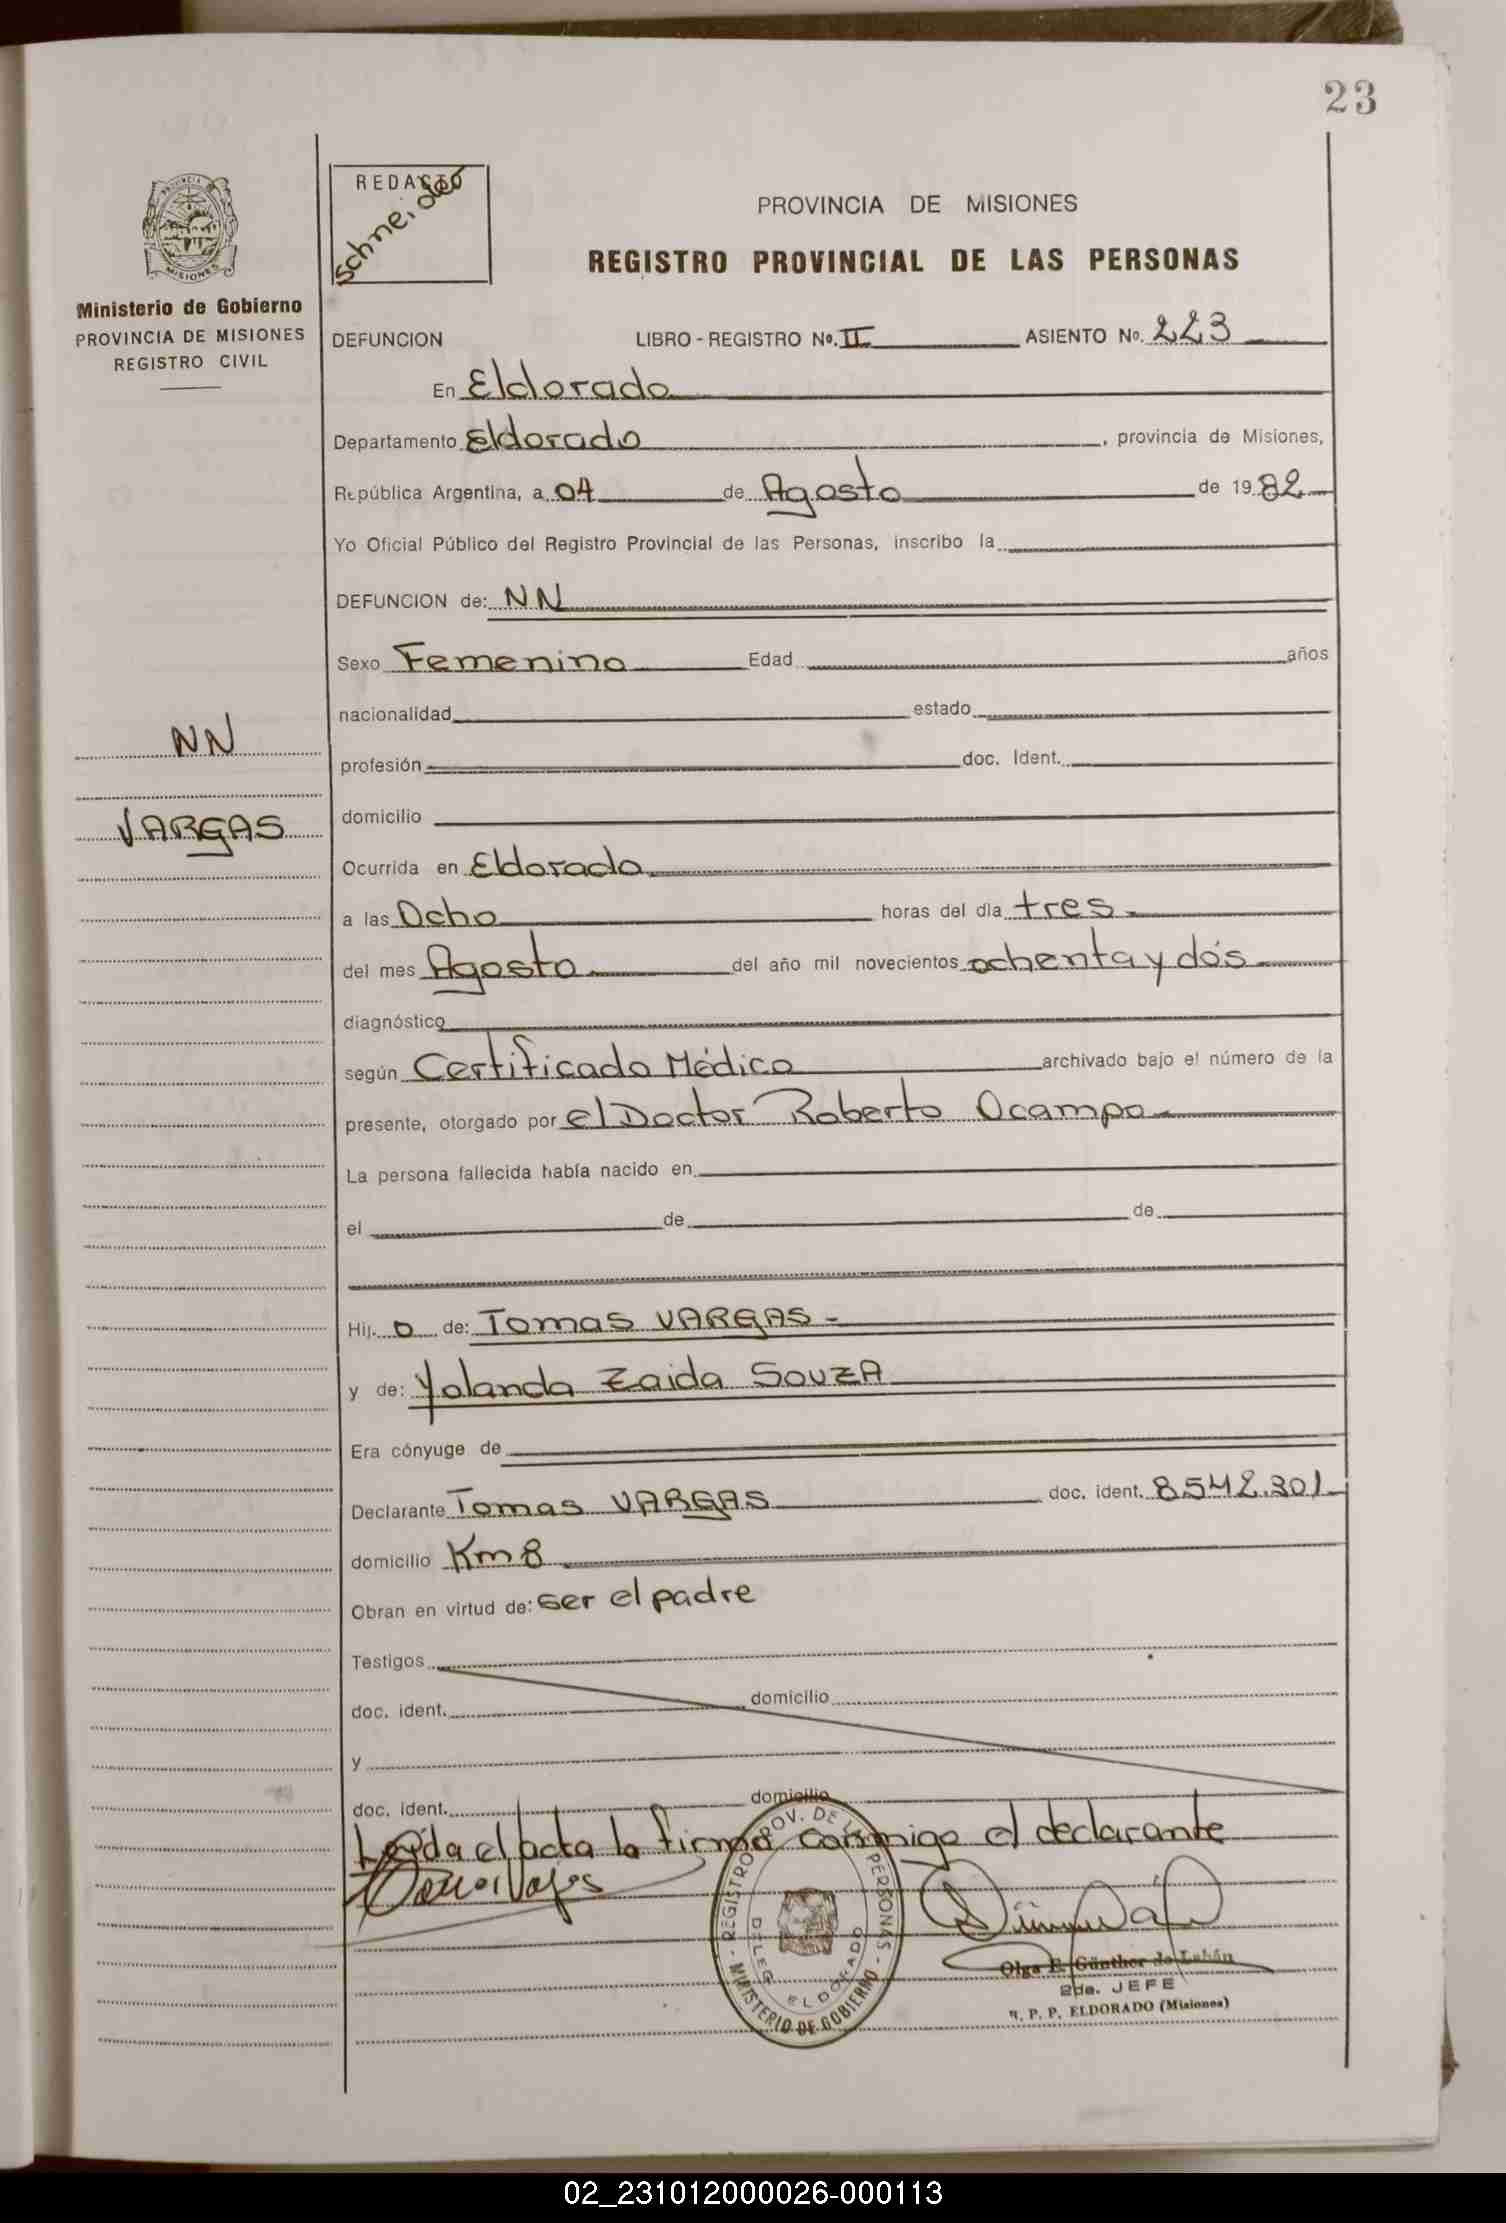 23
REDACTO
Schneider
PROVINCIA DE MISIONES
REGISTRO PROVINCIAL DE LAS PERSONAS
PROVINCIA
MISIONES
Ministerio de Gobierno
PROVINCIA DE MISIONES
REGISTRO CIVIL
DEFUNCION LIBRO - REGISTRO No. II ASIENTO No. 223
En Eldorado
Departamento Eldorado, provincia de Misiones,
República Argentina, a 04 de Agosto de 1982
Yo Oficial Público del Registro Provincial de las Personas, inscribo la
DEFUNCION de: NN
Sexo Femenino Edad años
nacionalidad estado
NN
profesión doc. Ident.
VARGAS
domicilio
Ocurrida en Eldorado
a las Ocho horas del día tres
del mes Agosto del año mil novecientos ochenta y dós
diagnóstico
según Certificado Médico archivado bajo el número de la
presente, otorgado por el Doctor Roberto Ocampo
La persona fallecida había nacido en
el de de
Hij o de: Tomas VARGAS
y de: Yolanda Zaida SOUZA
Era cónyuge de
Declarante Tomas VARGAS doc. ident. 8542.301
domicilio Km 8
Obran en virtud de: ser el padre
Testigos
doc. ident. domicilio
y
doc. ident. domicilio
Leída el acta la firma conmigo el declarante
REGISTRO PROV. DE LAS PERSONAS - MINISTERIO DE GOBIERNO -
DELEG. ELDORADO
Olga E. Günther de Lebán
2da. JEFE
R. P. P. ELDORADO (Misiones)
02_231012000026-000113